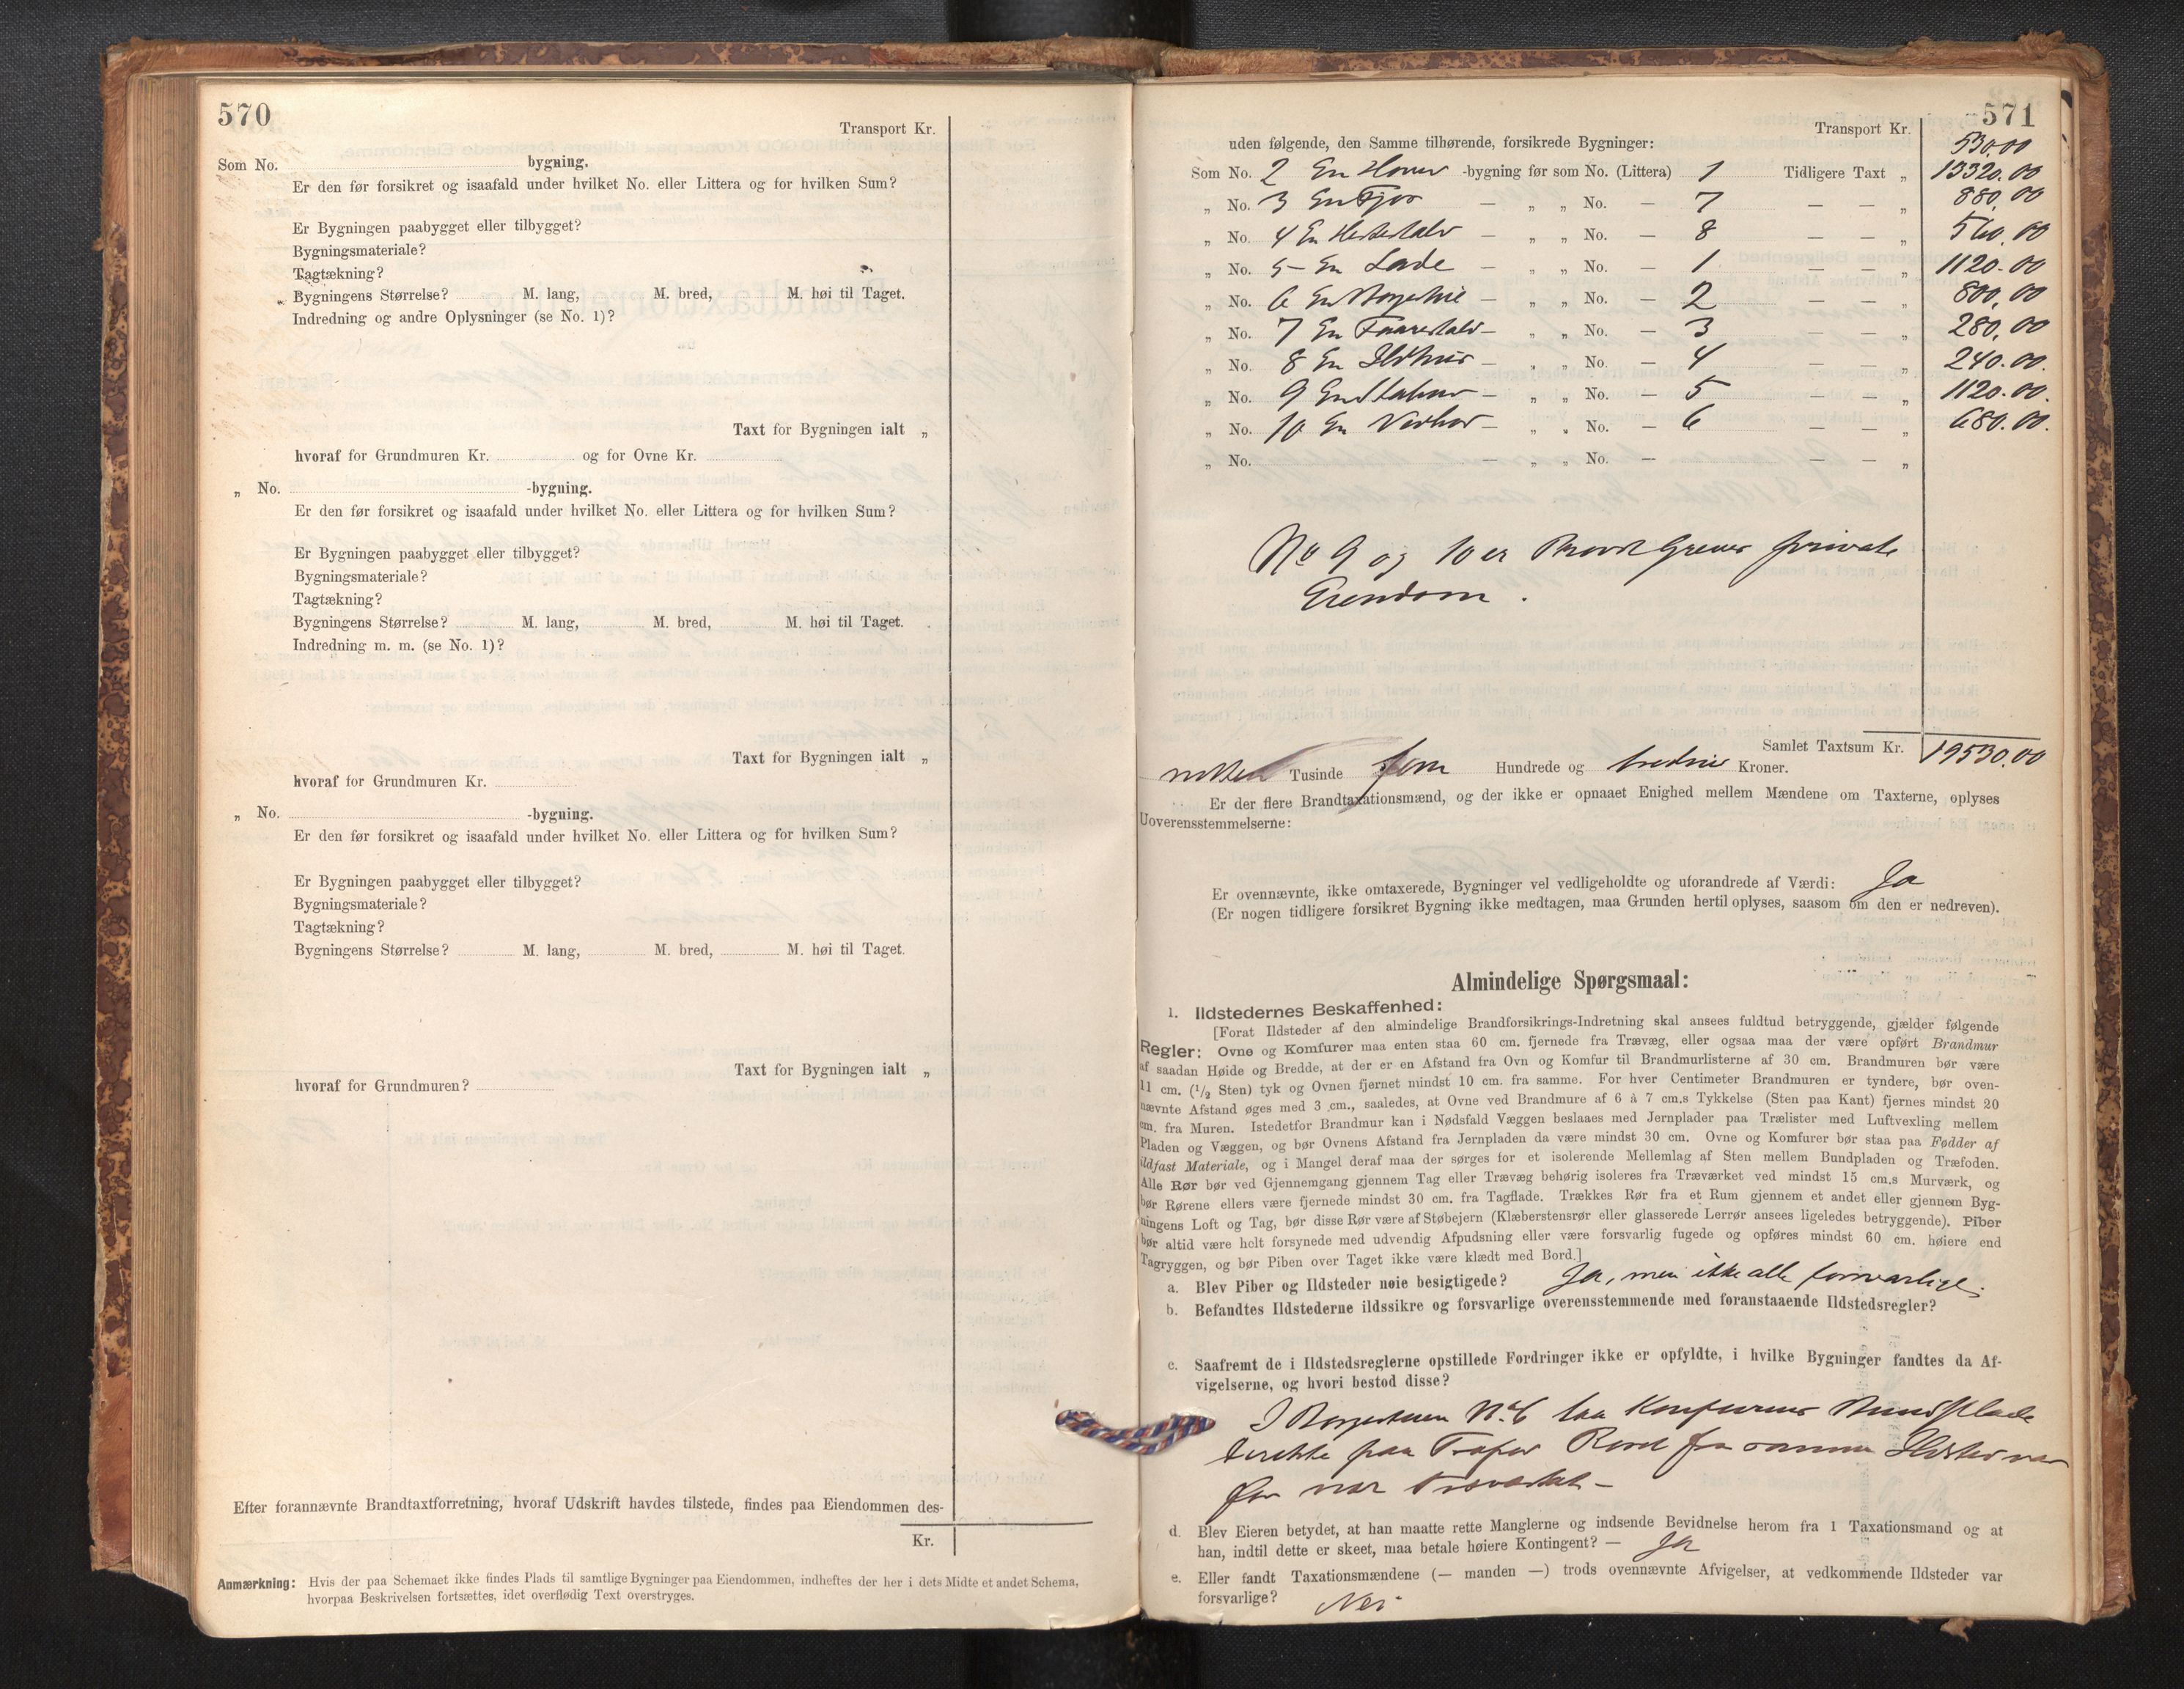 570
Transport Kr.
Som No. bygning.
Er den før forsikret og isaafald under hvilket No. eller Littera og for hvilken Sum?
Er Bygningen paabygget eller tilbygget?
Bygningsmateriale?
Tagtækning?
Bygningens Størrelse? M. lang, M. bred, M. høi til Taget.
Indredning og andre Oplysninger (se No. 1)?
Taxt for Bygningen ialt „
hvoraf for Grundmuren Kr. og for Ovne Kr.
„ No. -bygning.
Er den før forsikret og isaafald under hvilket No. eller Littera og for hvilken Sum?
Er Bygningen paabygget eller tilbygget?
Bygningsmateriale?
Tagtækning?
Bygningens Størrelse? M. lang, M. bred, M. høi til Taget.
Indredning m. m. (se No. 1)?
Taxt for Bygningen ialt „
hvoraf for Grundmuren Kr.
„ No. -bygning.
Er den før forsikret og isaafald under hvilket No. eller Littera og for hvilken Sum?
Er Bygningen paabygget eller tilbygget?
Bygningsmateriale?
Tagtækning?
Bygningens Størrelse? M. lang, M. bred, M. høi til Taget.
Taxt for Bygningen ialt „
hvoraf for Grundmuren?
Efter forannævnte Brandtaxtforretning, hvoraf Udskrift havdes tilstede, findes paa Eiendommen des-
Kr.
Anmærkning: Hvis der paa Schemaet ikke findes Plads til samtlige Bygninger paa Eiendommen, indheftes der her i dets Midte et andet Schema,
hvorpaa Beskrivelsen fortsættes, idet overflødig Text overstryges.
571
Transport Kr. 530.00
uden følgende, den Samme tilhørende, forsikrede Bygninger:
Som No. 2 En -bygning før som No. (Littera) 1 Tidligere Taxt „ 13320.00
„ No. 3 En Fjos — „ „ No. — 7 — — „ 880.00
„ No. 4 En Hestestald — „ „ No. — 8 — — „ 560.00
„ No. 5 En Lade — „ „ No. — 1 — — „ 1120.00
„ No. 6 En — „ „ No. — 2 — — „ 800.00
„ No. 7 En Faarestald — „ „ No. — 3 — — „ 280.00
„ No. 8 En Ildhus — „ „ No. — 4 — — „ 240.00.
„ No. 9 En Stabur — „ „ No. — 5 — — „ 1120.00.
„ No. 10 En Vedhus — „ „ No. — 6 — — „ 680.00.
„ No. — „ „ No. — — — „
No 9 og 10 er private
Eiendom.
Samlet Taxtsum Kr. 19530.00
nitten Tusinde fem Hundrede og tredive Kroner.
Er der flere Brandtaxationsmænd, og der ikke er opnaaet Enighed mellem Mændene om Taxterne, oplyses
Uoverensstemmelserne:
Er ovennævnte, ikke omtaxerede, Bygninger vel vedligeholdte og uforandrede af Værdi: Ja
(Er nogen tidligere forsikret Bygning ikke medtagen, maa Grunden hertil oplyses, saasom om den er nedreven).
Almindelige Spørgsmaal:
1. Ildstedernes Beskaffenhed:
[Forat Ildsteder af den almindelige Brandforsikrings-Indretning skal ansees fuldtud betryggende, gjælder følgende
Regler: Ovne og Komfurer maa enten staa 60 cm. fjernede fra Trævæg, eller ogsaa maa der være opført Brandmur
af saadan Høide og Bredde, at der er en Afstand fra Ovn og Komfur til Brandmurlisterne af 30 cm. Brandmuren bør være
11 cm. (1/2 Sten) tyk og Ovnen fjernet mindst 10 cm. fra samme. For hver Centimeter Brandmuren er tyndere, bør oven-
nævnte Afstand øges med 3 cm., saaledes, at Ovne ved Brandmure af 6 à 7 cm.s Tykkelse (Sten paa Kant) fjernes mindst 20
cm. fra Muren. Istedetfor Brandmur kan i Nødsfald Væggen beslaaes med Jernplader paa Trælister med Luftvexling mellem
Pladen og Væggen, og bør Ovnens Afstand fra Jernpladen da være mindst 30 cm. Ovne og Komfurer bør staa paa Fødder af
ildfast Materiale, og i Mangel deraf maa der sørges for et isolerende Mellemlag af Sten mellem Bundpladen og Træfoden.
Alle Rør bør ved Gjennemgang gjennem Tag eller Trævæg behørig isoleres fra Træværket ved mindst 15 cm.s Murværk, og
bør Rørene ellers være fjernede mindst 30 cm. fra Tagflade. Trækkes Rør fra et Rum gjennem et andet eller gjennem Byg-
ningens Loft og Tag, bør disse Rør være af Støbejern (Klæberstensrør eller glasserede Lerrør ansees ligeledes betryggende). Piber
bør altid være helt forsynede med udvendig Afpudsning eller være forsvarlig fugede og opføres mindst 60 cm. høiere end
Tagryggen, og bør Piben over Taget ikke være klædt med Bord.]
a. Blev Piber og Ildsteder nøie besigtigede? Ja, men ikke alle forsvarlige.
b. Befandtes Ildstederne ildssikre og forsvarlige overensstemmende med foranstaaende Ildstedsregler?
c. Saafremt de i Ildstedsreglerne opstillede Fordringer ikke er opfyldte, i hvilke Bygninger fandtes da Af-
vigelserne, og hvori bestod disse?
I No 6 laa Komfurens Bundplade
direkte paa fra samme Ildsted var
for nær Træværket –
d. Blev Eieren betydet, at han maatte rette Manglerne og indsende Bevidnelse herom fra 1 Taxationsmand og at
han, indtil dette er skeet, maa betale høiere Kontingent? — Ja
e. Eller fandt Taxationsmændene (— manden —) trods ovennævnte Afvigelser, at vedkommende Ildsteder var
forsvarlige? Nei